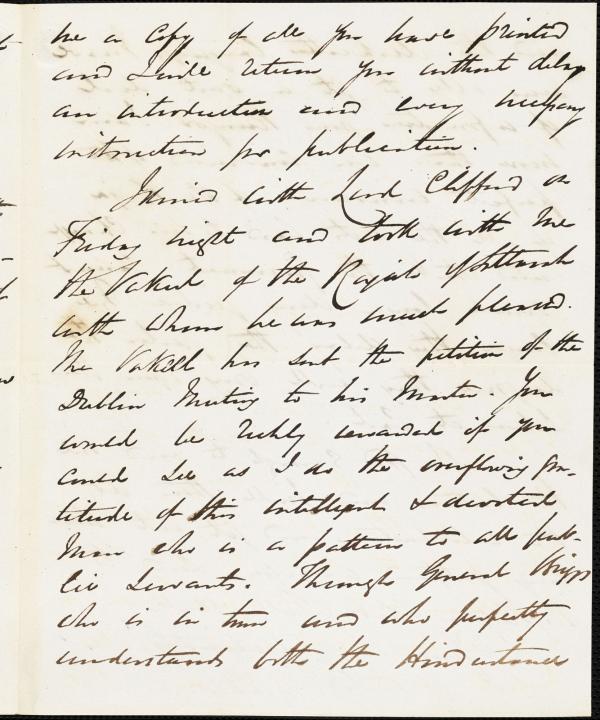 me a copy of all you have printed
and I will return you without delay
an introduction and every necessary
instruction for publication.
I dined with Lord Clifford on
Friday night and took with me
the Vakeel of the Rajah of Sattarah
with whom he was much pleased.
The Vakeel has sent the petition of the
Dublin Meeting to his Master. You
would be richly rewarded if you
could see as I do the overflowing gra-
titude of this intelligent & devoted
Man who is a pattern to all pub-
lic servants. Through General Briggs
who is in town and who perfectly
understands both the Hindustanee